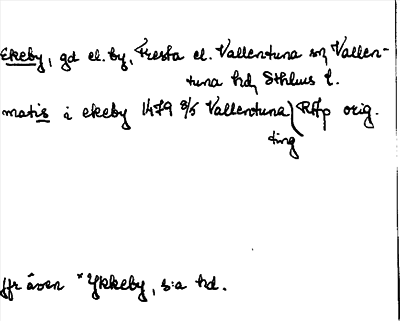 Ekeby, gd el. by, Fresta el. Vallentuna sn, Vallen-
tuna hd, Sthlms l.
matis i ekeby 1479 8/5 Vallentuna ting) RAp orig.
jfr även *Ykkeby, s:a hd.